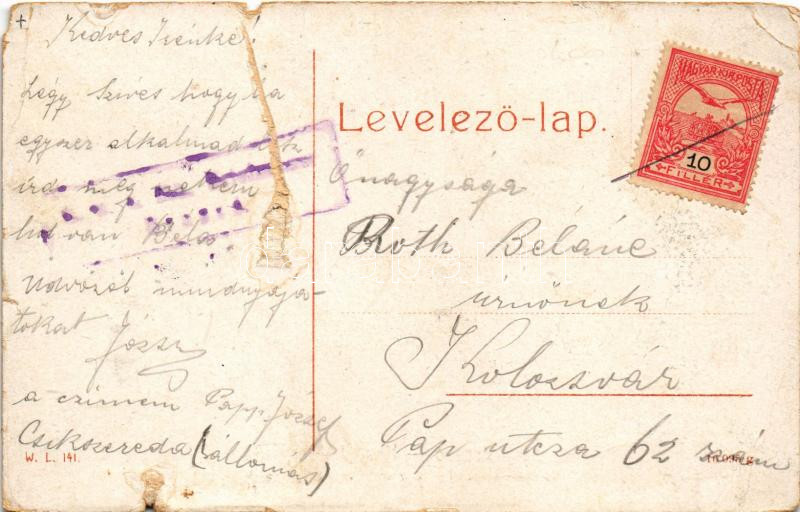 Kedves Irénke!
Légy szives hogy ha
egyszer alkalmad lesz
ird meg nekem
hol van Béla
Üdvözöl mindnyája-
tokat Józsi
a czimem Papp József
Csikszereda (állomás)
W. L. 141.
Levelező-lap.
MAGYAR KIR. POSTA
10
FILLÉR
Őnagysága
Roth Béláné
úrnőnek
Kolozsvár
Pap utcza 62 szám